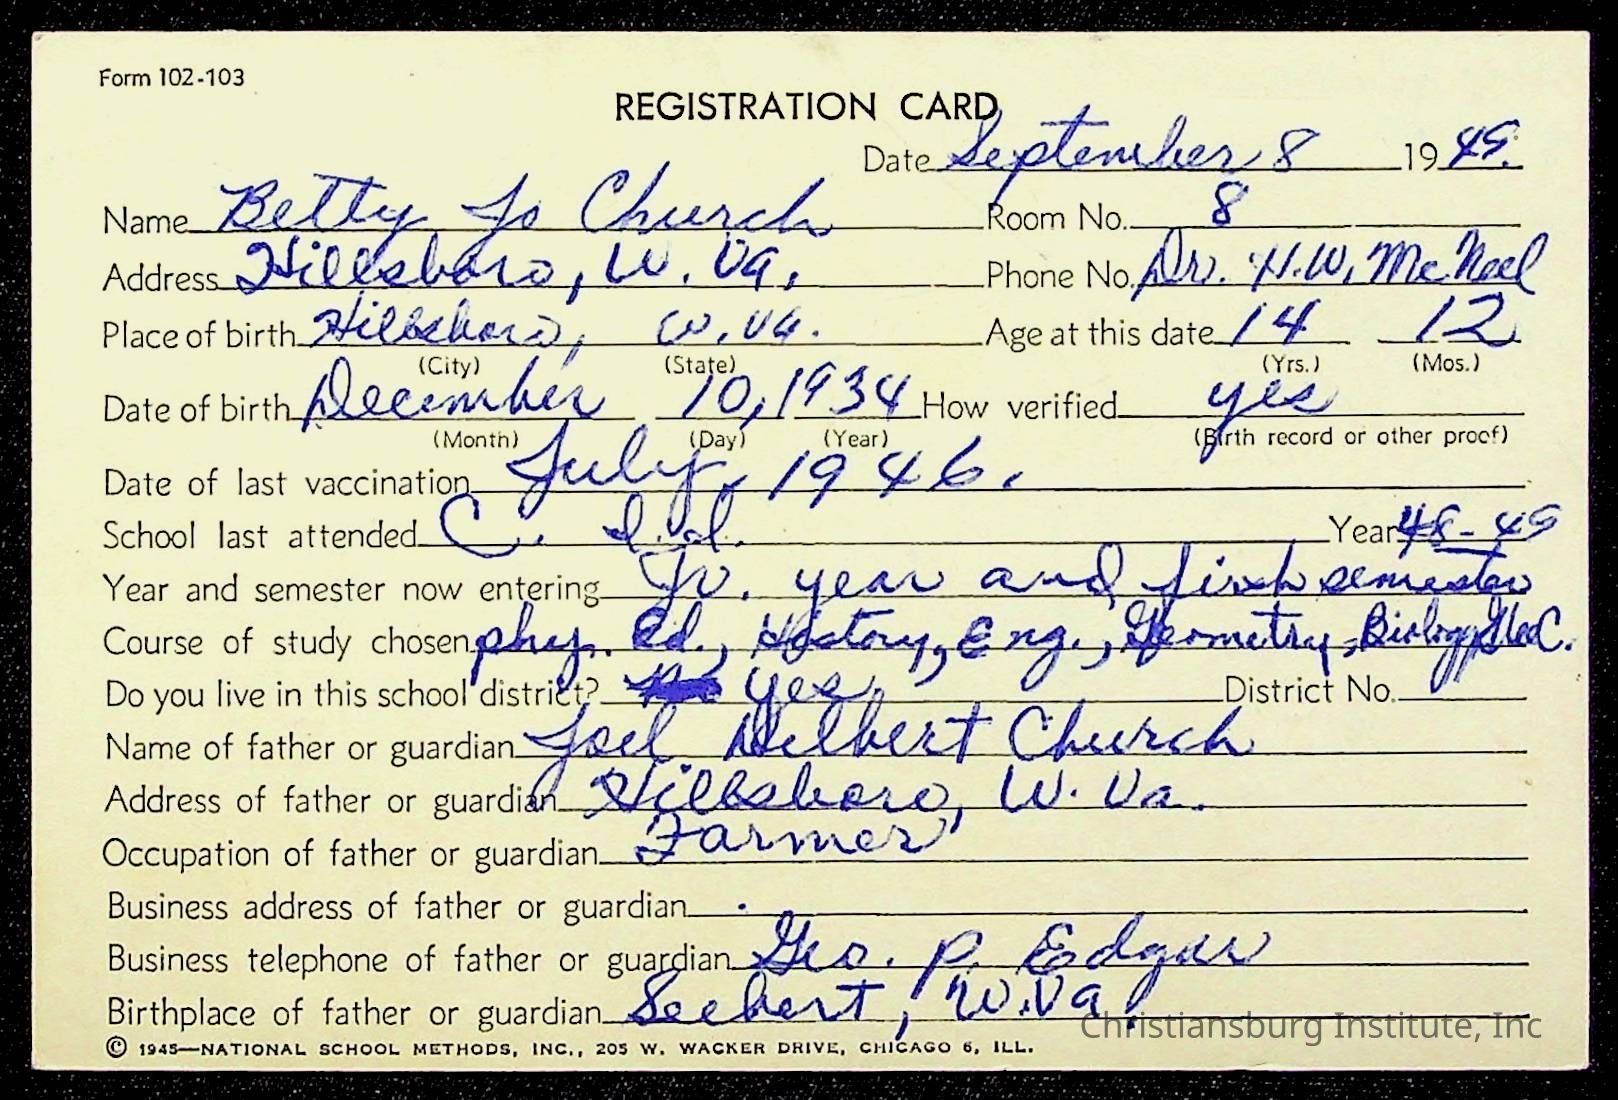 Form 102-103
REGISTRATION CARD
Date September 8 1949.
Name Betty Jo Church Room No. 8
Address Hillsboro, W. Va. Phone No. Dr. H.W. McNeel
Place of birth Hillsboro, W. Va. Age at this date 14 12
(City) (State) (Yrs.) (Mos.)
Date of birth December 10, 1934 How verified yes
(Month) (Day) (Year) (Birth record or other proof)
Date of last vaccination July, 1946.
School last attended C. I. Year 48-49
Year and semester now entering Jr. year and first semester
Course of study chosen phy. Ed., History, Eng., Geometry, Biology,
Do you live in this school district? yes. District No.
Name of father or guardian Joel Delbert Church
Address of father or guardian Hillsboro, W. Va.
Occupation of father or guardian Farmer
Business address of father or guardian
Business telephone of father or guardian Geo. P. Edgar
Birthplace of father or guardian Seebert, W. Va.
Christiansburg Institute, Inc
© 1945—NATIONAL SCHOOL METHODS, INC., 205 W. WACKER DRIVE, CHICAGO 6, ILL.